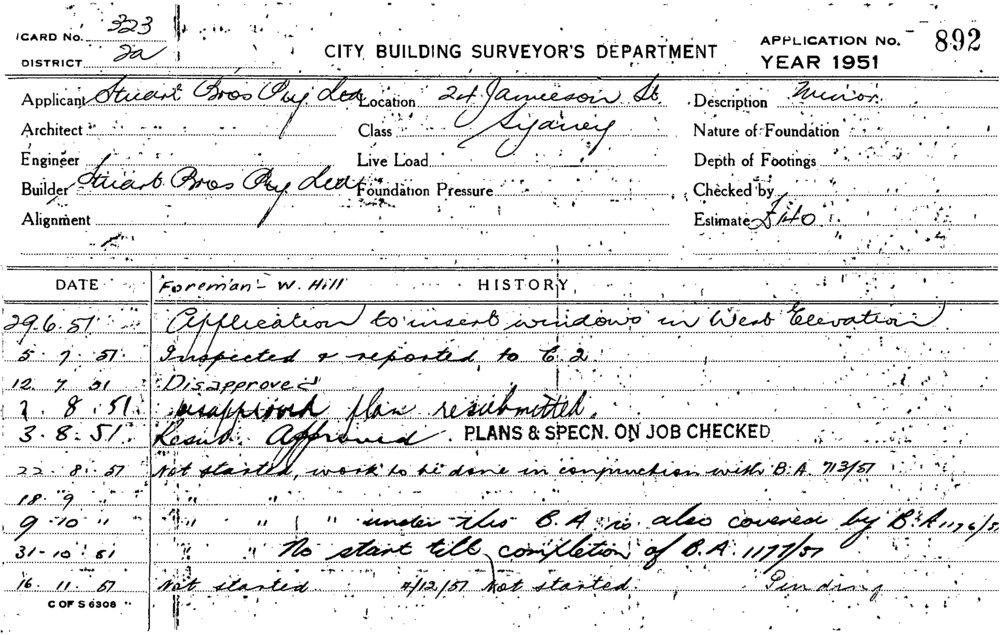 CARD No. 323
DISTRICT 2a
CITY BUILDING SURVEYOR'S DEPARTMENT
APPLICATION No. 892
YEAR 1951
Applicant Stuart Bros Pty Ltd Location 24 Jamieson St. Description Minor
Architect Class Sydney Nature of Foundation
Engineer Live Load Depth of Footings
Builder Stuart Bros Pty Ltd Foundation Pressure Checked by
Alignment Estimate £140
DATE Foreman - W. Hill HISTORY
29.6.51 Application to insert windows in West Elevation
5.7.51. Inspected & reported to C.2
12.7.51 Disapproved
8.51. disapproved plan resubmitted.
3.8.51. Resub. Approved. PLANS & SPECN. ON JOB CHECKED
22.8.51 Not started, work to be done in conjunction with B.A. 713/51
18.9 " " "
9-10 " " " " under this B.A is also covered by B.A 1176/51
31-10.51 " " No start till completion of B.A. 1177/51
16.11.51 Not started 4/12/51 Not started. Pending
C OF S 6308